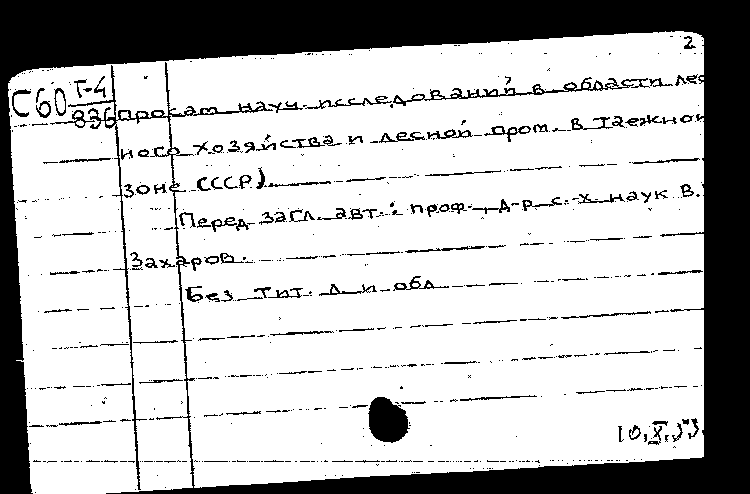 2
С60 Т-4
836 просам науч. исследований в области лес
ного хозяйства и лесной пром. в таежной
зоне СССР).
Перед загл. авт.: проф., д-р с.-х. наук В.
Захаров.
Без тит. л. и обл